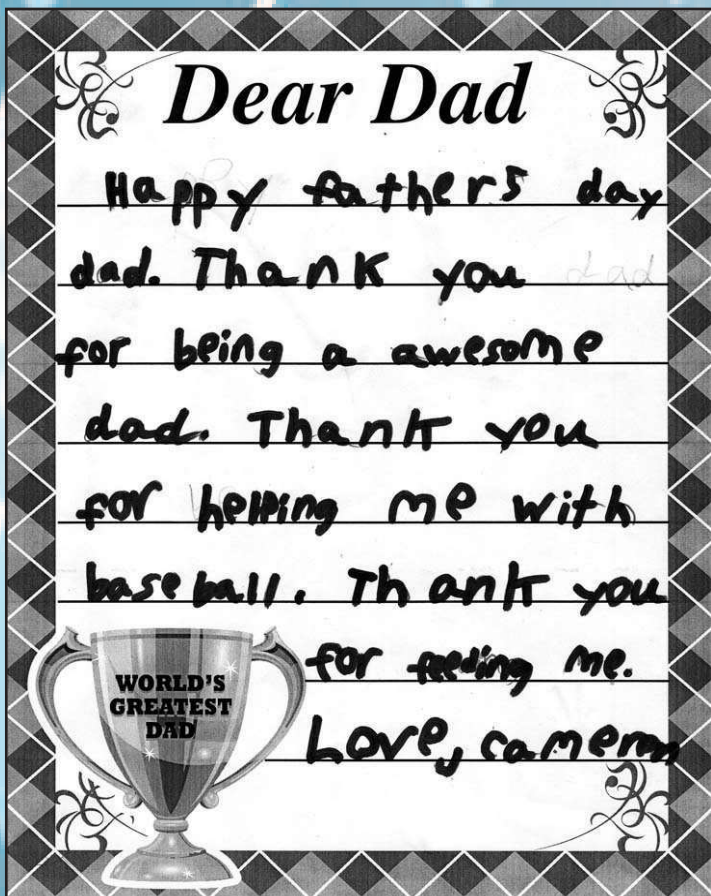 Dear Dad
Happy fathers day
dad. Thank you dad
for being a awesome
dad. Thank you
for helping me with
baseball. Thank you
for feeding me.
Love, cameron
WORLD'S
GREATEST
DAD